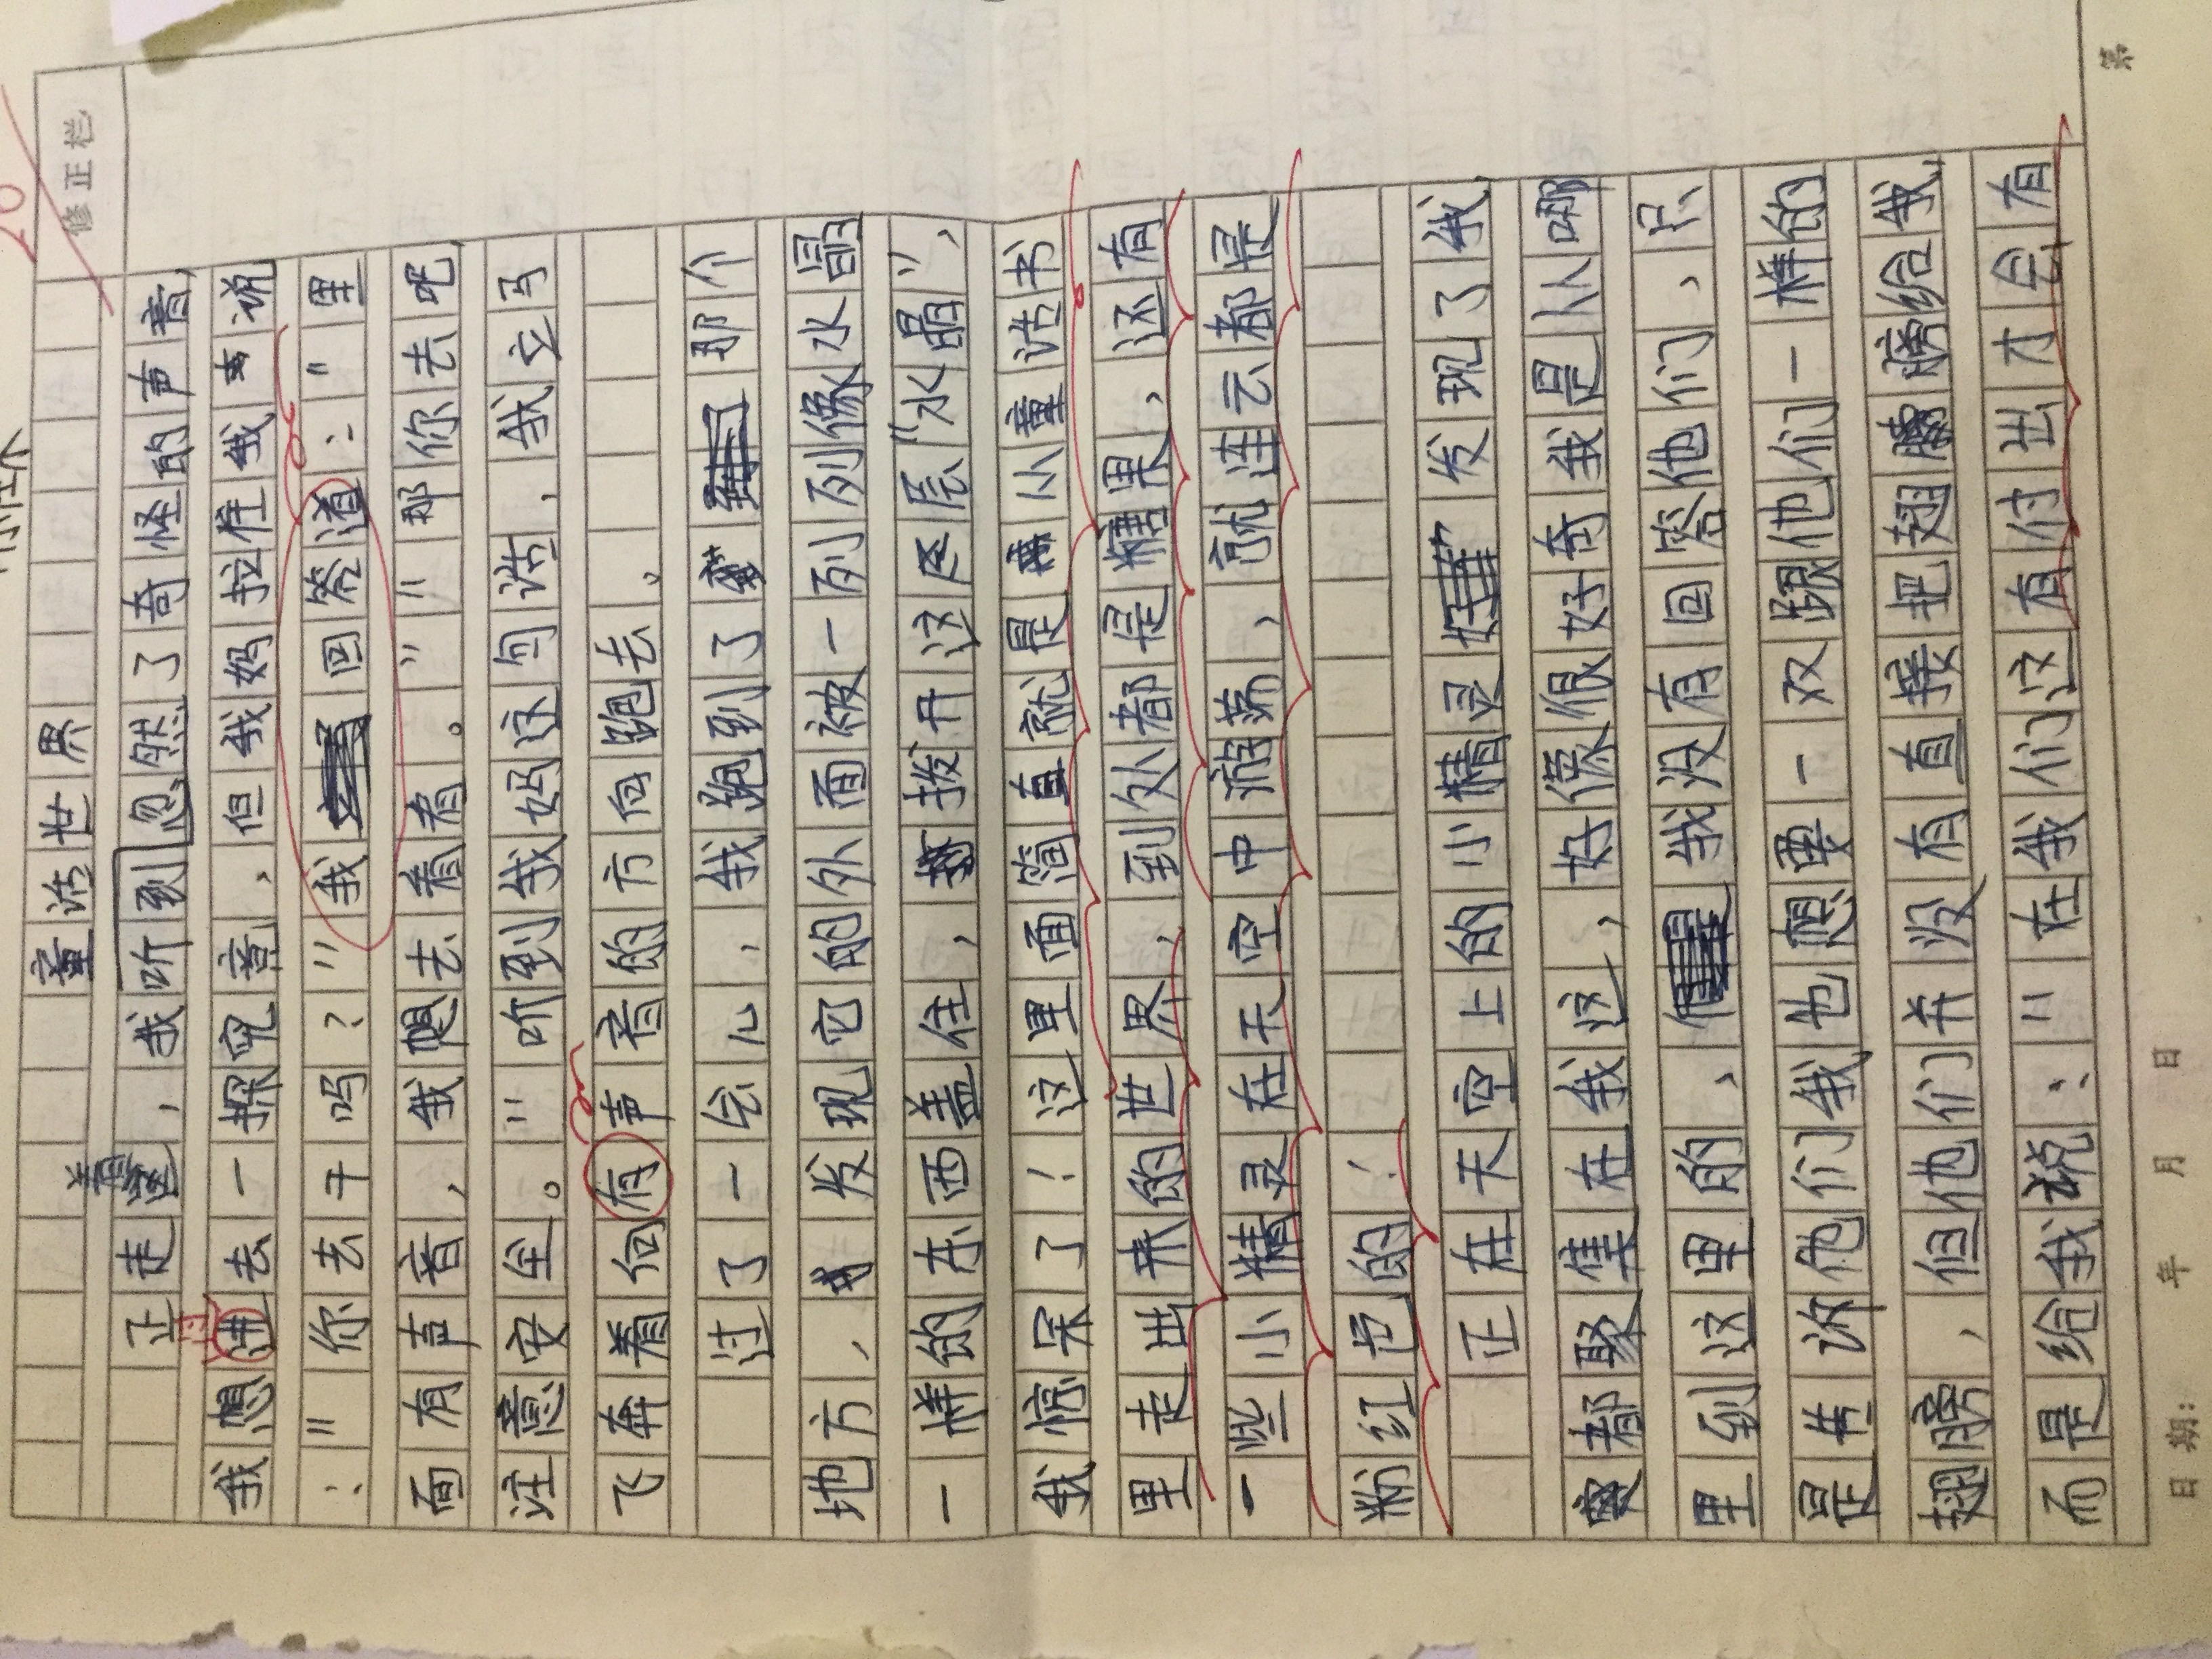 修正栏
童话世界
正走着，我听到忽然了奇怪的声音，
我想进去一探究竟，但我妈拉住我说
：“你去干吗？”我回答道：“里
面有声音，我想去看看。”“那你去吧，
注意安全。”听到我妈这句话，我立马
飞奔着向有声音的方向跑去。
过了一会儿，我跑到了那个
地方，发现它的外面被一列列像水晶
一样的东西盖住，拨开这层层“水晶”，
我惊呆了！这里面简直就是从童话书
里走出来的世界，到处都是糖果，还有
一些小精灵在天空中游荡，就连云都是
粉红色的！
正在天空上的小精灵发现了我，
都聚集在我这，好像很好奇我是从哪
里到这里的，我没有回答他们，只
是告诉他们我也想要一双跟他们一样的
翅膀，但他们并没有直接把翅膀给我，
而是给我说：“在我们这有付出才会有
日期: 年 月 日 第